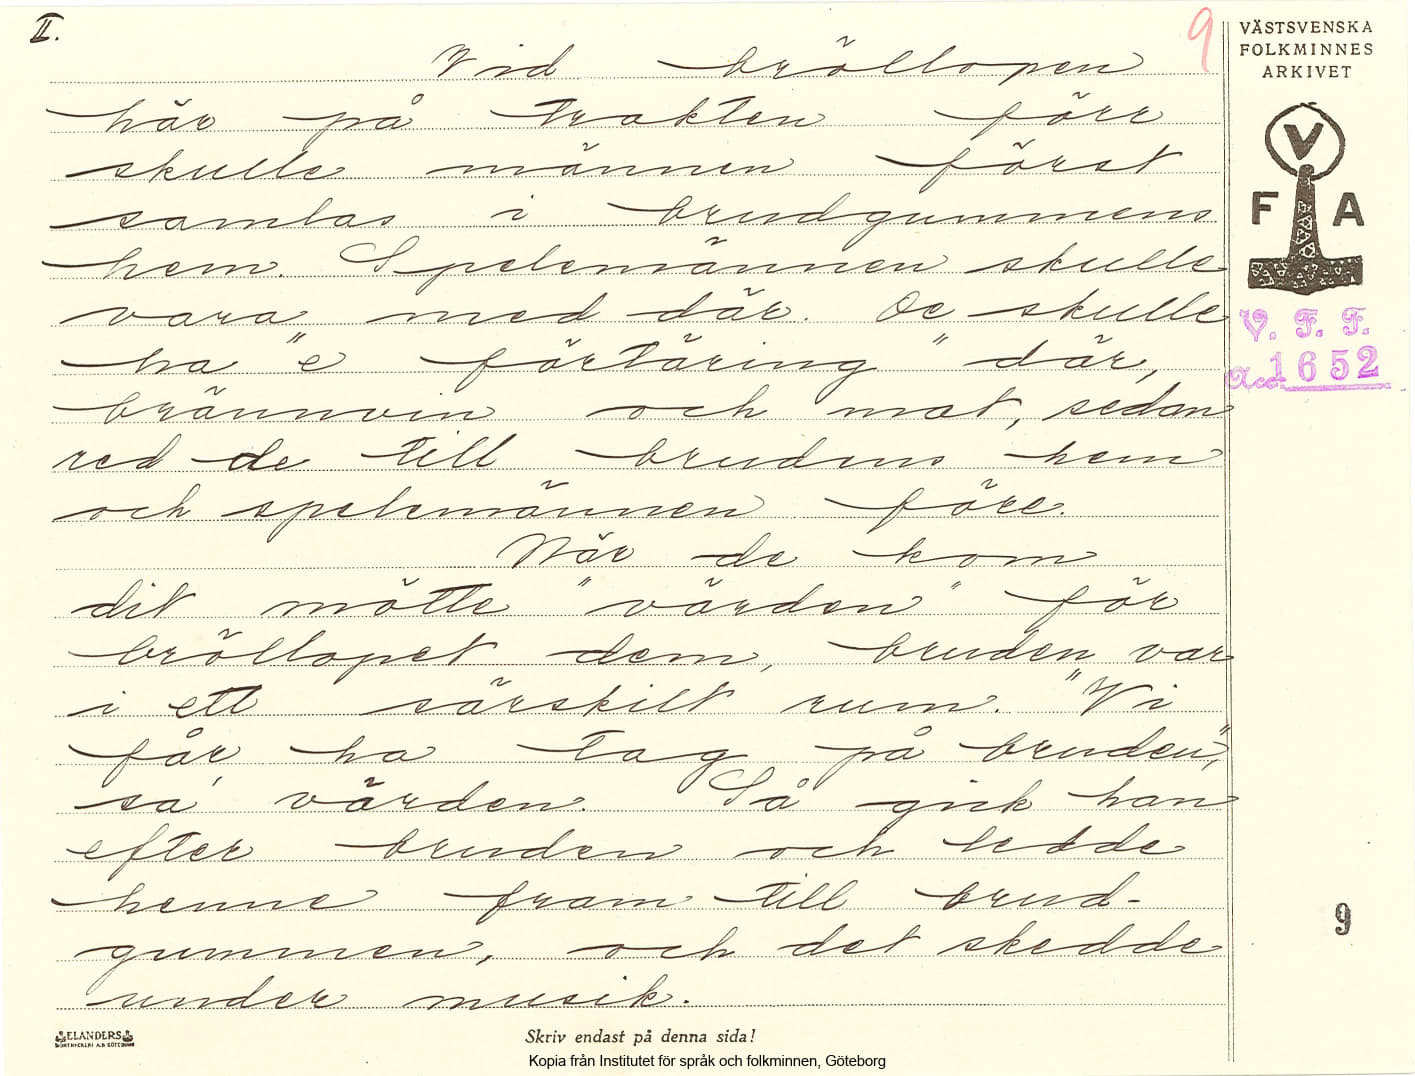 II.
9
VÄSTSVENSKA
FOLKMINNES
ARKIVET
V
F A
V. F. F.
Acc. 1652
Vid bröllopen
här på trakten förr
skulle männen först
samlas i brudgummens
hem. Spelemännen skulle
vara med där. De skulle
ha "e förtäring" där,
brännvin och mat, sedan
red de till brudens hem
och spelemännen före.
När de kom
dit mötte "värden" för
bröllopet dem, bruden var
i ett särskilt rum. "Vi
får ha tag på bruden",
sa' värden. Så gick han
efter bruden och ledde
henne fram till brud-
gummen, och det skedde
under musik.
9
ELANDERS
BOKTRYCKERI A.B. GÖTEBORG
Skriv endast på denna sida!
Kopia från Institutet för språk och folkminnen, Göteborg